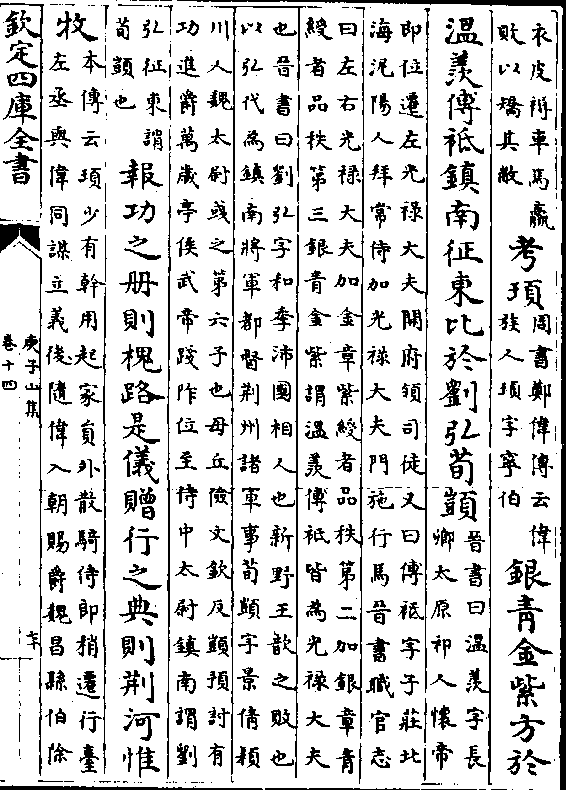 衣皮褥車馬羸
敗以矯其敝
考頊
周書鄭偉傳云偉
族人頊字寧伯
銀青金紫方於
温羨傅袛鎮南征東比於劉弘荀顗
晉書曰温羨字長
卿太原祁人懷帝
即位遷左光祿大夫開府領司徒又曰傅袛字子莊北
海泥陽人拜常侍加光祿大夫門施行馬晉書職官志
曰左右光祿大夫加金章紫綬者品秩第二加銀章青
綬者品秩第三銀青金紫謂温羨傅袛皆為光祿大夫
也晉書曰劉弘字和季沛國相人也新野王歆之敗也
以弘代為鎮南將軍都督荆州諸軍事荀顗字景倩潁
川人魏太尉彧之第六子也毋丘儉文欽反顗預討有
功進爵萬歲亭侯武帝踐阼位至侍中太尉鎮南謂劉
弘征東謂
荀顗也
報功之册則槐路是儀贈行之典則荆河惟
牧
本傳云頊少有幹用起家員外散騎侍郎稍遷行臺
左丞與偉同謀立義後隨偉入朝賜爵魏昌縣伯除
欽定四庫全書
庾子山集
卷十四